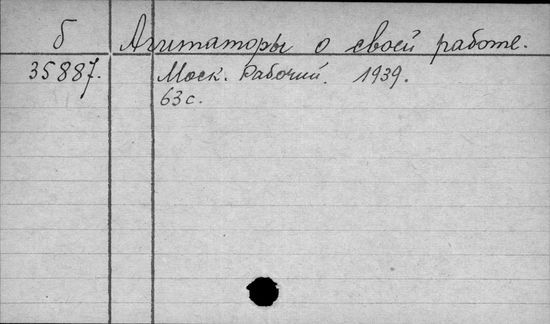 б Агитаторы о своей работе.
35887. Моск. Рабочий. 1939.
63 с.